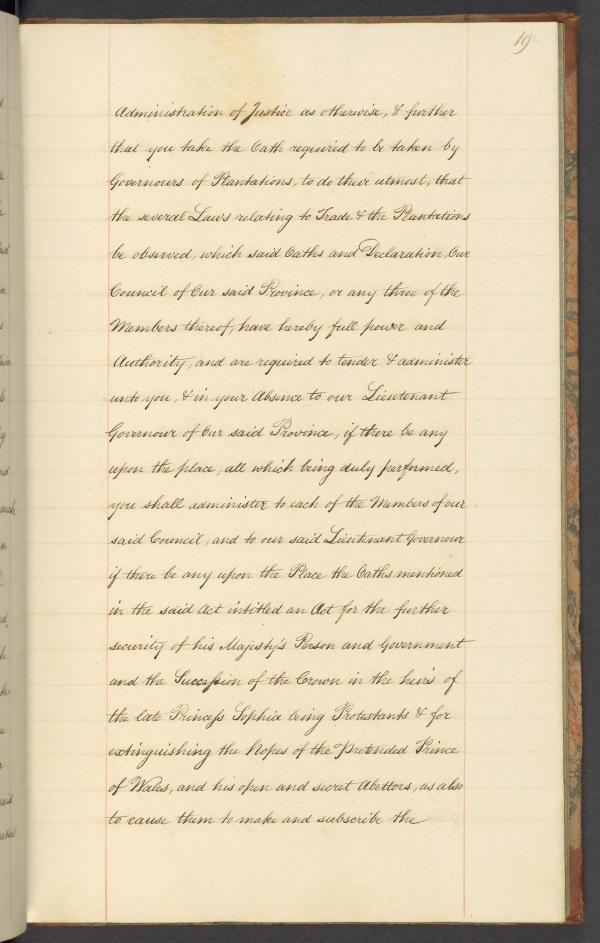 19
Administration of Justice as otherwise, & further
that you take the Oath required to be taken by
Governours of Plantations, to do their utmost, that
the several Laws relating to Trade & the Plantations
be observed, which said Oaths and Declaration, Our
Council of Our said Province, or any three of the
Members thereof, have hereby full power and
Authority, and are required to tender & administer
unto you, & in your Absence to our Lieutenant
Governour of Our said Province, if there be any
upon the place, all which being duly performed,
you shall administer to each of the Members of our
said Council, and to our said Lieutenant Governour
if there be any upon the Place the Oaths mentioned
in the said Act intitled an Act for the further
security of his Majesty's Person and Government
and the Succession of the Crown in the heirs of
the late Princess Sophia being Protestants & for
extinguishing the Hopes of the Pretended Prince
of Wales, and his open and secret Abettors, as also
to cause them to make and subscribe the